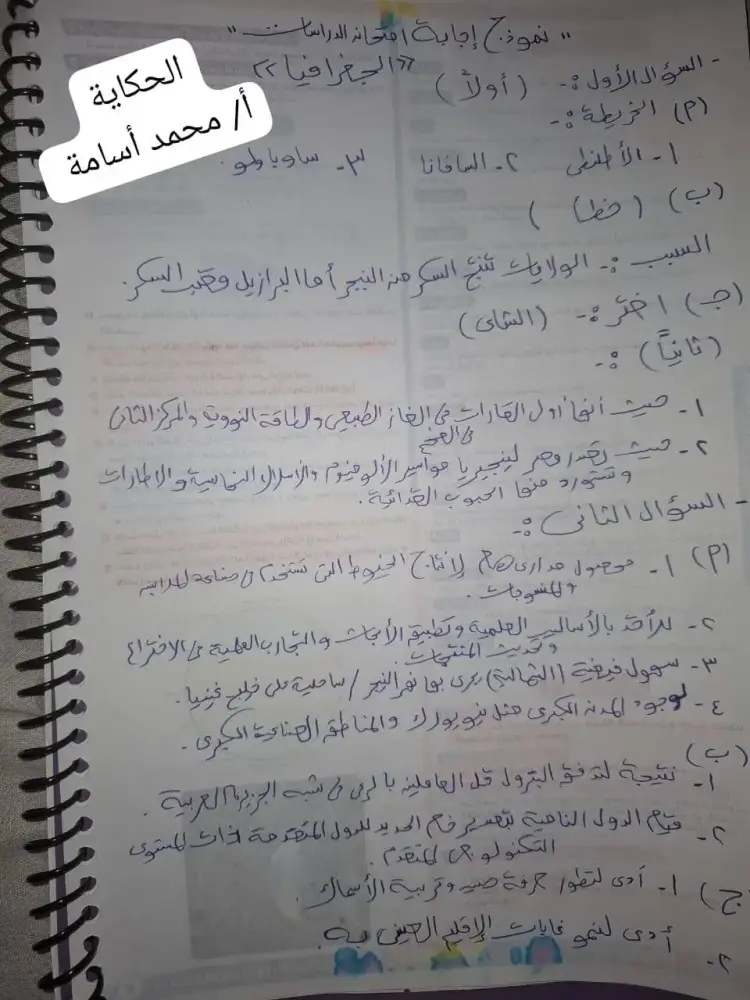 " نموذج إجابة امتحان الدراسات "
« الجغرافيا »
الحكاية
أ/ محمد أسامة
- السؤال الأول :- ( أولاً )
(م) الخريطة :-
١- الأطلنطى ٢- السافانا ٣- ساوباولو
(ب) ( خطأ )
السبب :- الولايات تنتج السكر من البنجر أما البرازيل قصب السكر.
(جـ) اختر :- (الشاى)
(ثانياً) :-
١- حيث أنها أول القارات فى الغاز الطبيعى والطاقة النووية والمركز الثانى
فى الفحم
٢- حيث تصدر مصر لنيجيريا مواسير الألومنيوم والأسلاك النحاسية والاطارات
وتستورد منها الحبوب الغذائية.
- السؤال الثانى :-
(م) ١- محصول مدارى هام لإنتاج الخيوط التى تستخدم فى صناعة الملابس
والمنسوجات.
٢- للأخذ بالأساليب العلمية وتطبيق الأبحاث والتجارب العلمية فى الاختراع
وتحديث المنتجات.
٣- سهول فيضية (الشمالية) يجرى بها نهر النيجر / ساحلية على خليج غينيا.
٤- لوجود المدن الكبرى مثل نيويورك والمناطق الصناعية الكبرى.
(ب)
١- نتيجة لتدفق البترول قل العاملين بالرعى فى شبه الجزيرة العربية.
٢- قيام الدول النامية بتصدير خام الحديد للدول المتقدمة ذات المستوى
التكنولوجى المتقدم.
(ج) ١- أدى لتطور حرفة صيد وتربية الأسماك.
٢- أدى لنمو غابات الإقليم الصينى به.